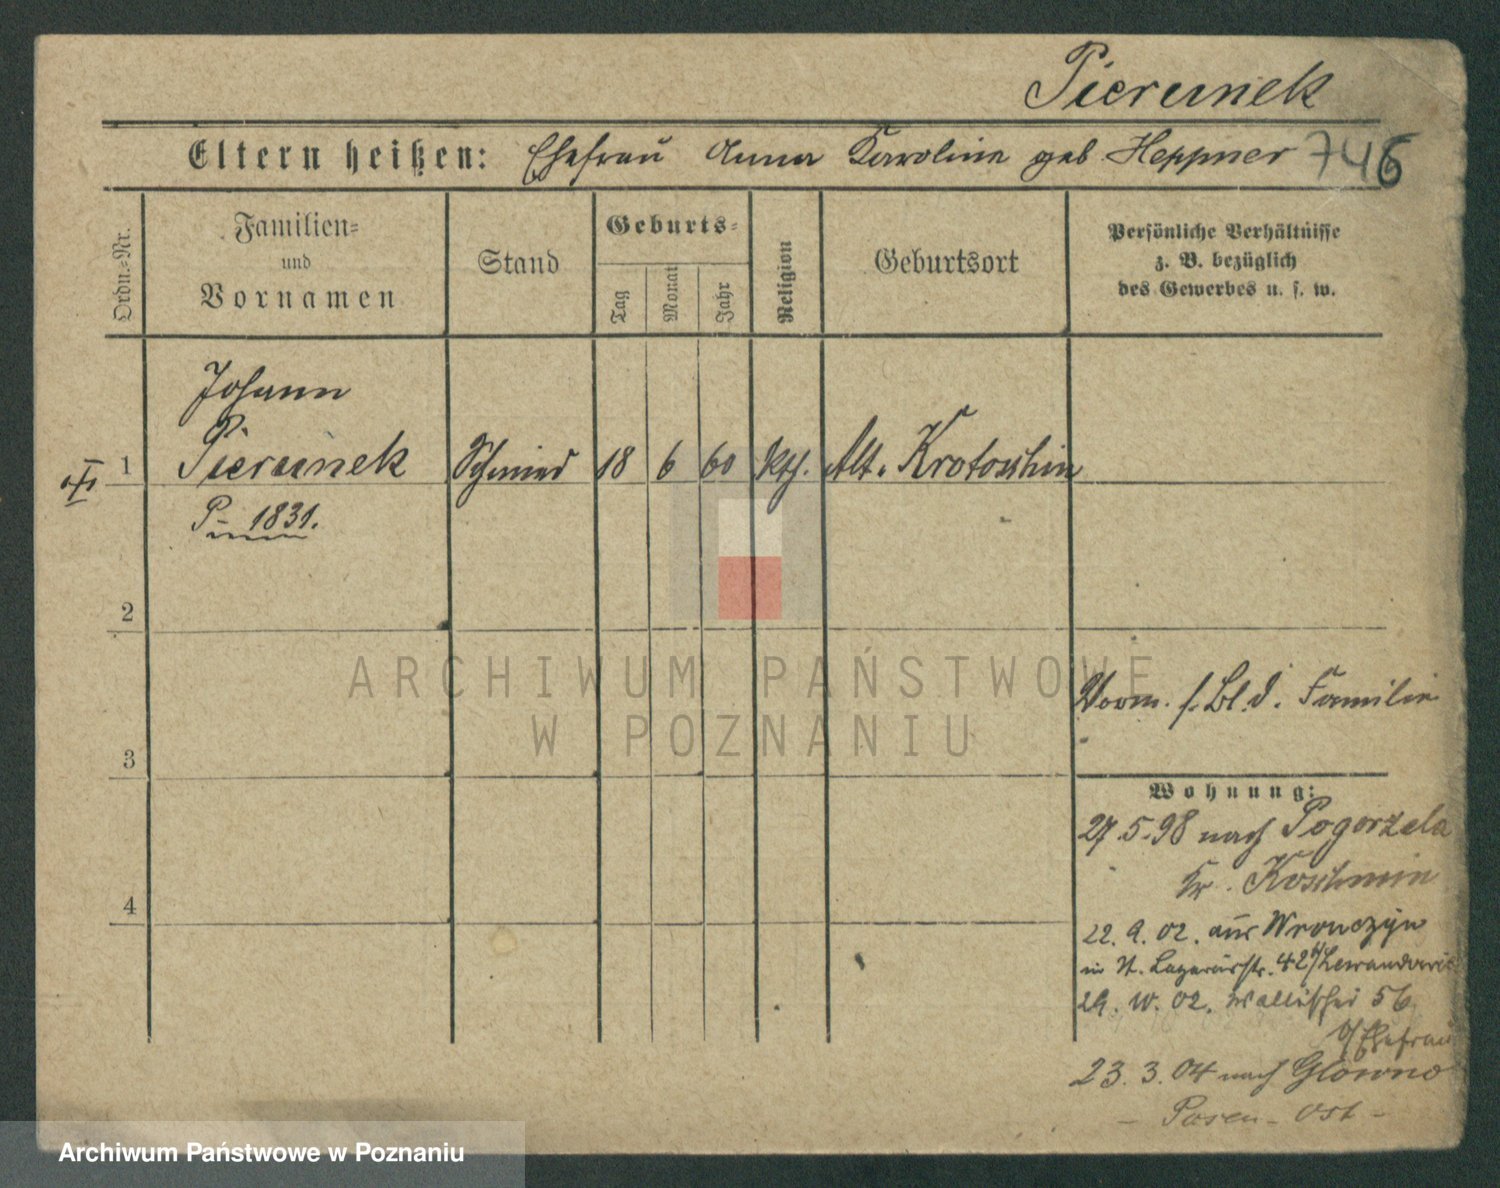 Pierunek
Eltern heißen: Ehefrau Anna Karoline geb Heppner 746
Ordn.-Nr.
Familien-
und
Vornamen
Stand
Geburts-
Tag
Monat
Jahr
Religion
Geburtsort
Persönliche Verhältnisse
z. B. bezüglich
des Gewerbes u. s. w.
Johann
1 Pierunek Schmied 18 6 60 kth. Alt. Krotoschin
P- 1831.
2
Vorm. s. Bl. d. Familie
3
Wohnung:
27.5.98 nach Pogorzela
Kr. Koschmin
4
22. 9. 02. aus Wronczyn
in St. Lazarusstr. 42
29. 10. 02. Wallischei 56
Ehefrau
23. 3. 04 nach Glowno
- Posen - Ost -
ARCHIWUM PAŃSTWOWE
W POZNANIU
Archiwum Państwowe w Poznaniu